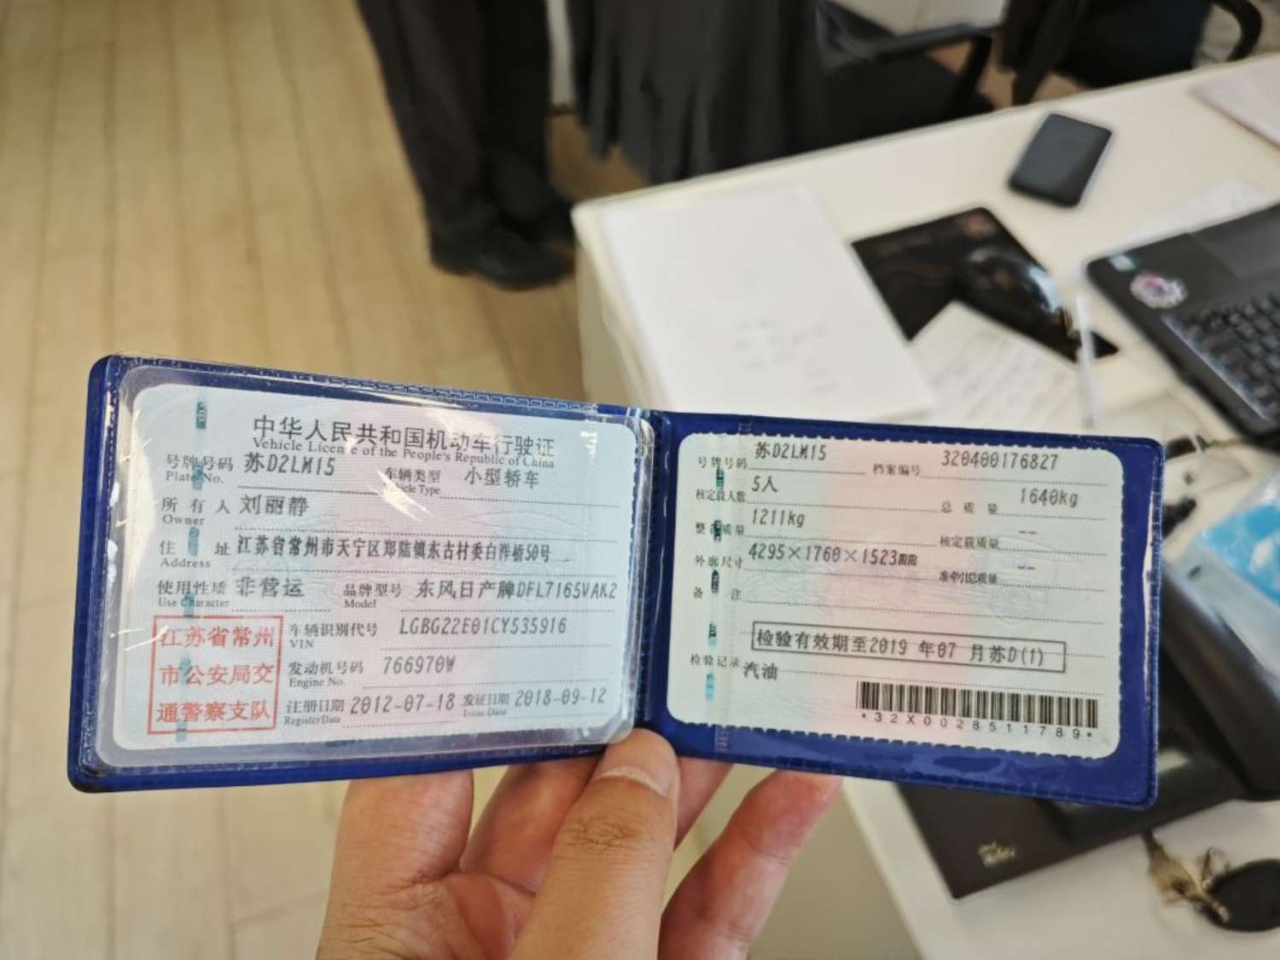 中华人民共和国机动车行驶证
Vehicle License of the People's Republic of China
号牌号码 苏D2LM15 车辆类型 小型轿车
Plate No. Vehicle Type
所有人 刘丽静
Owner
住址 江苏省常州市天宁区郑陆镇东古村委白洋桥50号
Address
使用性质 非营运 品牌型号 东风日产牌DFL7165VAK2
Use Character Model
江苏省常州
市公安局交
通警察支队
车辆识别代号 LGBG22E01CY535916
VIN
发动机号码 766970W
Engine No.
注册日期 2012-07-18 发证日期 2018-09-12
Register Date Issue Date
号牌号码 苏D2LM15 档案编号 320400176827
核定载人数 5人 总质量 1640kg
整备质量 1211kg 核定载质量 --
外廓尺寸 4295×1760×1523mm 准牵引总质量 --
备注
检验有效期至2019年07月苏D(1)
检验记录 汽油
*32X0028511789*